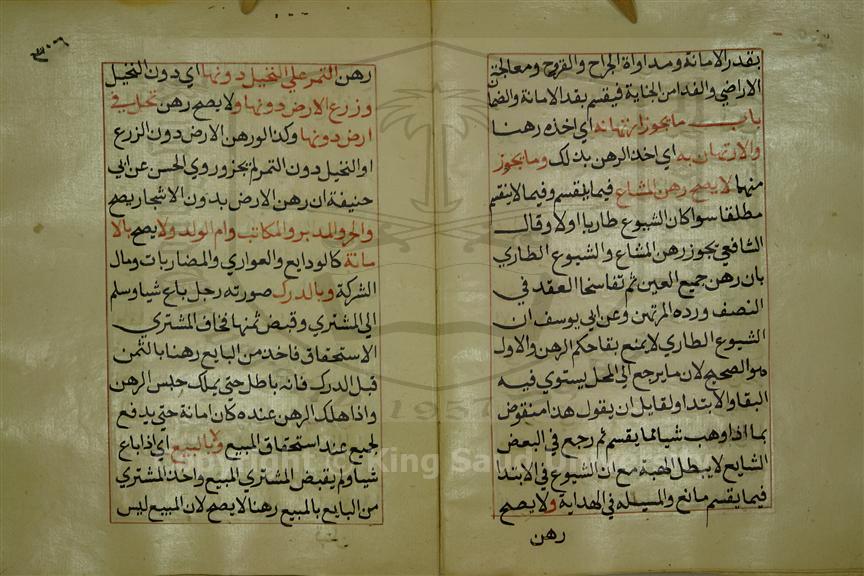 بقدر الامانة ومداواة الجراح والقروح ومعالجة
الاراضي والفدا من الجناية فيقسم بقد الامانة والضما
باب ما يجوز ارتهانه اي اخذه رهنا
والارتهان به اي اخذ الرهن بذلك وما يجوز
منها لا يصح رهن المشاع فيما ينقسم وفيما لا ينقيم
مطلقا سوا كان الشيوع طاريا اولا وقال
الشافعي يجوز رهن المشاع والشيوع الطاري
بان رهن جميع العين ثم تفاسخا العقد في
النصف ورده المرتهن وعن ابي يوسف ان
الشيوع الطاري لا يمنع بقا حكم الرهن والاول
هو الصحيح لان ما يرجع الي المحل يستوي فيه
البقا والابتدا ولقايل ان يقول هذا منقوض
بما اذا وهب شيا لما يقسم ثم رجع في البعض
الشايع لا يبطل الهبة مع ان الشيوع في الابتدا
فيما يقسم مانع والمسيلة في الهداية ولا يصح
رهن
رهن التمر علي النخيل دونها اي دون النخيل
وزرع الارض دونها ولا يصح رهن نخل في
ارض دونها وكذا لو رهن الارض دون الزرع
او النخيل دون التمر لم يجز وروي الحسن عن ابي
حنيفة ان رهن الارض بدون الاشجار يصح
والحر والمدبر والمكاتب وام الولد ولا يصح بالا
مانة كالودايع والعواري والمضاربات ومال
الشركة وبالدرك صورته رجل باع شيا وسلم
الي المشتري وقبض ثمنها فخاف المشتري
الاستحقاق فاخذ من البايع رهنا بالثمن
قبل الدرك فانه باطل حتي يملك حبس الرهن
واذا هلك الرهن عنده كان امانة حتي يدفع
لجميع عند استحقاق المبيع ولا بالمبيع اي اذا باع
شيا ولم يقبض المشتري المبيع واخذ المشتري
من البايع بالمبيع رهنا لا يصح لان المبيع ليس
1957
King Saud University